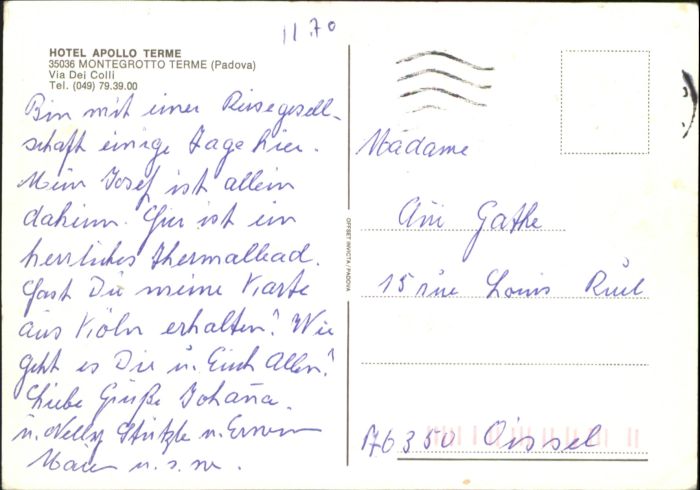 11.70
HOTEL APOLLO TERME
35036 MONTEGROTTO TERME (Padova)
Via Dei Colli
Tel. (049) 79.39.00
Bin mit einer Reisegesell-
schaft einige Tage hier.
Mein Josef ist allein
daheim. Hier ist ein
herrliches Thermalbad.
Hast Du meine Karte
aus Köln erhalten? Wie
geht es Dir u. Euch Allen?
Liebe Grüße Johana.
u. Nelly Stützle u. Erwin
Maier u. s. w.
OFFSET INVICTA / PADOVA
Madame
Gathe
15 rue Louis Ruel
76350 Oissel